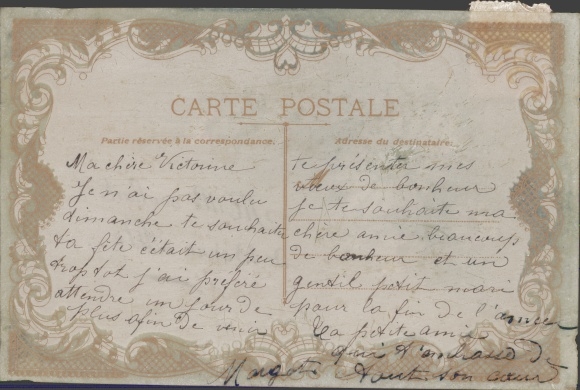 CARTE POSTALE
Partie réservée à la correspondance.
Adresse du destinataire:
Ma chère Victorine
Je n'ai pas voulu
dimanche te souhaiter
ta fête c'était un peu
trop tôt j'ai préféré
attendre un jour de
plus afin de venir
te présenter mes
vœux de bonheur
je te souhaite ma
chère amie beaucoup
de bonheur et un
gentil petit mari
pour la fin de l'année
Ta petite amie
qui t'embrasse de
Margot tout son cœur